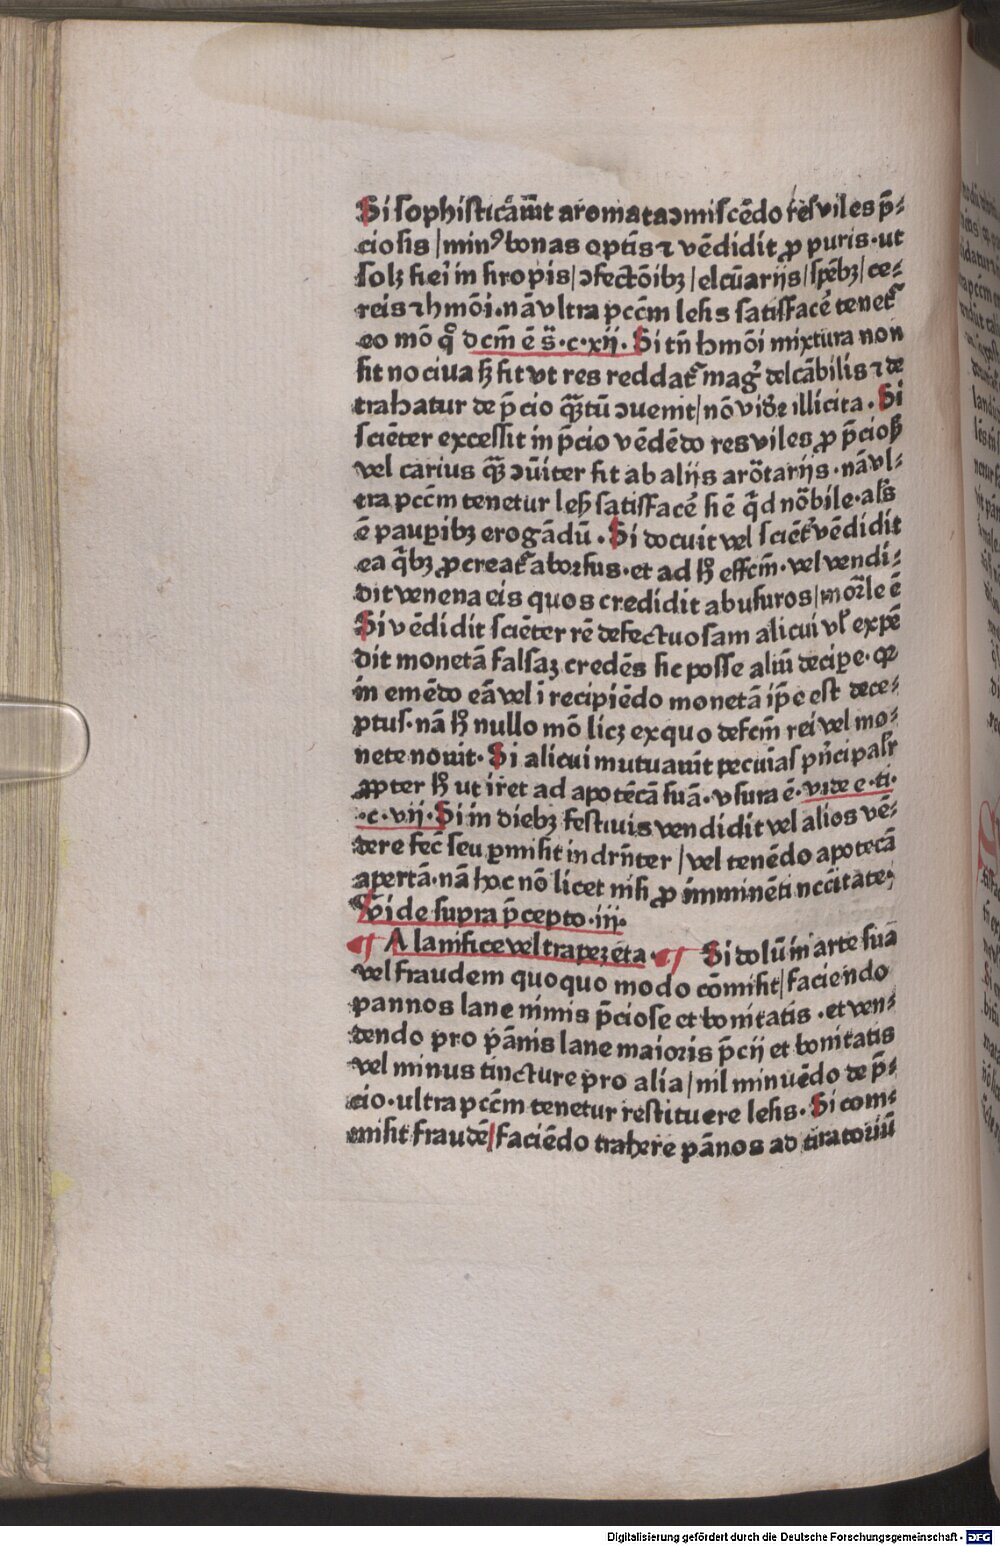 Si sophisticāuit aromata ↄmiscēdo res viles p̄⸗
ciosis / minꝰ bonas optīs ⁊ vēdidit ꝓ puris. ut
solꝫ fiei in siropis / ↄfectōibꝫ / elcūarijs / spēbꝫ / ce⸗
reis ⁊ hmōi. nā vltra pccm̄ lesis satisfacē tenet̄
eo mō q̊ dcm̄ ē s̄. c. xij. Si tn̄ hmōi mixtura non
sit nociua sꝫ sit vt res reddat̄ mag̊ delcābilis ⁊ de
trahatur de p̄cio qȝtū ↄuenit / nō vidr̄ illicita. Si
sciēter excessit in p̄cio vēdēdo res viles ꝓ p̄cioß
vel carius qȝ ↄūiter fit ab alijs arōtarijs. nā vl⸗
tra pccm̄ tenetur leß satisfacē si ē q̄d nōbile. als̄
ē pauꝑibꝫ erogādū. Si docuit vel sciēt̄ vēdidit
ea q̄bꝫ ꝓcreat̄ aborsus. et ad h̊ effcm̄. vel vendi⸗
dit venena eis quos credidit abusuros / mor̄le ē
Si vēdidit sciēter rē defectuosam alicui vl̓ expē
dit monetā falsaꝫ credēs sic posse aliū deciꝑe. qꝛ
in emēdo eā vel i recipiēdo monetā ip̄e est dece⸗
ptus. nā h̊ nullo mō licꝫ ex quo defcm̄ rei vel mo⸗
nete nouit. Si alicui mutuauit pecūias p̄ncipalr̄
ꝓpter h̊ ut iret ad apotēcā suā. vsura ē. vide e. ti.
. c. vij. Si in diebꝫ festiuis vendidit vel alios vē⸗
dere fec̄ seu ꝑmisit indrn̄ter / vel tenēdo apotecā
apertā. nā hoc nō licet nisi ꝓ imminēti nccitate.
Vide supra p̄cepto. iij.
¶ A lanifice vel trapezeta. ¶ Si dolū in arte sua
vel fraudem quoquo modo cōmisit / faciendo
pannos lane nimis p̄ciose et bonitatis. et ven⸗
dendo pro pānis lane maioris p̄cij et bonitatis
vel minus tincture pro alia / nil minuēdo de p̄⸗
cio. ultra pccm̄ tenetur restituere lesis. Si com⸗
misit fraudē / faciēdo trahere pānos ad tiratoriū
Digitalisierung gefördert durch die Deutsche Forschungsgemeinschaft - DFG